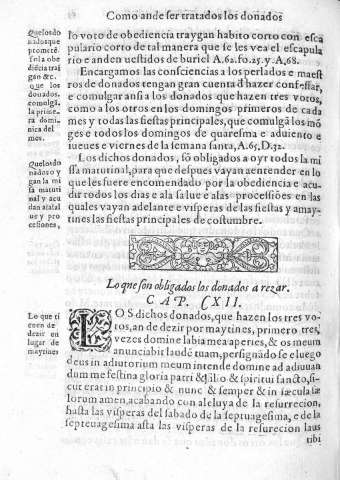 Como ande ser tratados los donados
Que los do
nados que
prometē
solo obe
diēcia trai
gan &c.
Que los
donados,
comulgā
la prime-
ra domi
nica del
mes.
lo voto de obediencia traygan habito corto con esca
pulario corto de tal manera que se les vea el escapula
rio e anden uestidos de buriel A.62.fo.25.y A.68.
Encargamos las consciencias a los perlados e maest
ros de donados tengan gran cuenta d̄ hazer confessar,
e comulgar ansi a los donados que hazen tres votos,
como a los otros en los domingos primeros de cada
mes y todas las fiestas principales, que comulgā los mō
ges e todos los domingos de quaresma e aduiento e
iueues e viernes de la semana santa, A.65, D.32.
Que los do
nados oy
gan la mi
sa matuti
nal, y acu
dan a las sal
ues y pro
cesiones,
Los dichos donados, sō obligados a oyr todos la mi
ssa matutinal, para que despues vayan a entender en lo
que les fuere encomendo por la obediencia e acu-
dir todos los dias e a la salue e a las processiōes en las
quales vayan adelante e visperas de las fiestas y amay-
tines las fiestas principales de costumbre.
Lo que son obligados los donados a rezar.
CAP. CXII.
Lo que ti
enen de
dezir en
lugar de
maytines
LOS dichos donados, que hazen los tres vo-
tos, an de dezir por maytines, primero tres,
vezes domine labia mea aperies, & os meum
anunciabit laudē tuam, persignādo se e luego
deus in adiutorium meum intende domine ad adiuuan
dum me festina gloria patri & filio & spiritui sancto, si-
cut erat in principio & nunc & semper & in sæcula sæ
lorum amen, acabando con aleluya de la resurrecion,
hasta las visperas del sabado de la septuagesima, e de la
septuagesima asta las visperas de la resurrecion laus
tibi